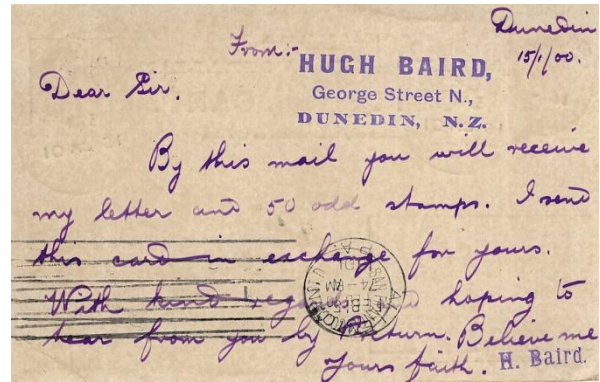 Dunedin
From:- 15/1/00.
HUGH BAIRD,
George Street N.,
DUNEDIN, N.Z.
Dear Sir.
By this mail you will receive
my letter and 50 odd stamps. I send
this card in exchange for yours.
With kind hoping to
hear from you by return. Believe me
Yours faith. H. Baird.